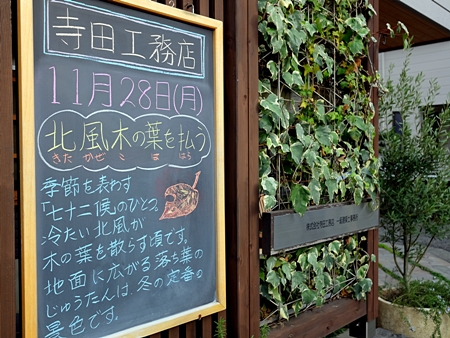 寺田工務店
11月28日(月)
北風木の葉を払う
きたかぜこのははら
季節を表わす
「七十二候」のひとつ。
冷たい北風が
木の葉を散らす頃です。
地面に広がる落ち葉の
じゅうたんは、冬の定番の
景色です。
株式会社寺田工務店 一級建築士事務所